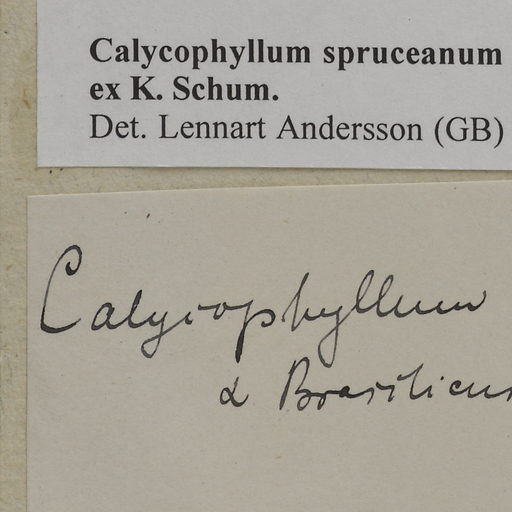 Calycophyllum spruceanum
ex K. Schum.
Det. Lennart Andersson (GB)
Calycophyllum
α Brasilicus